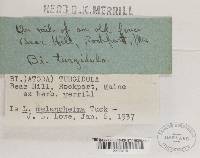 HERB G.K. MERRILL
On rail of an old fence
Bear Hill, Rockport, Me
Bi. turgidula.
BI.(ATORA) TURGIDULA
Bear Hill, Rockport, Maine
ex herb. Merrill
Is L. melancheima Tuck -
J. L. Lowe, Jan. 5, 1937